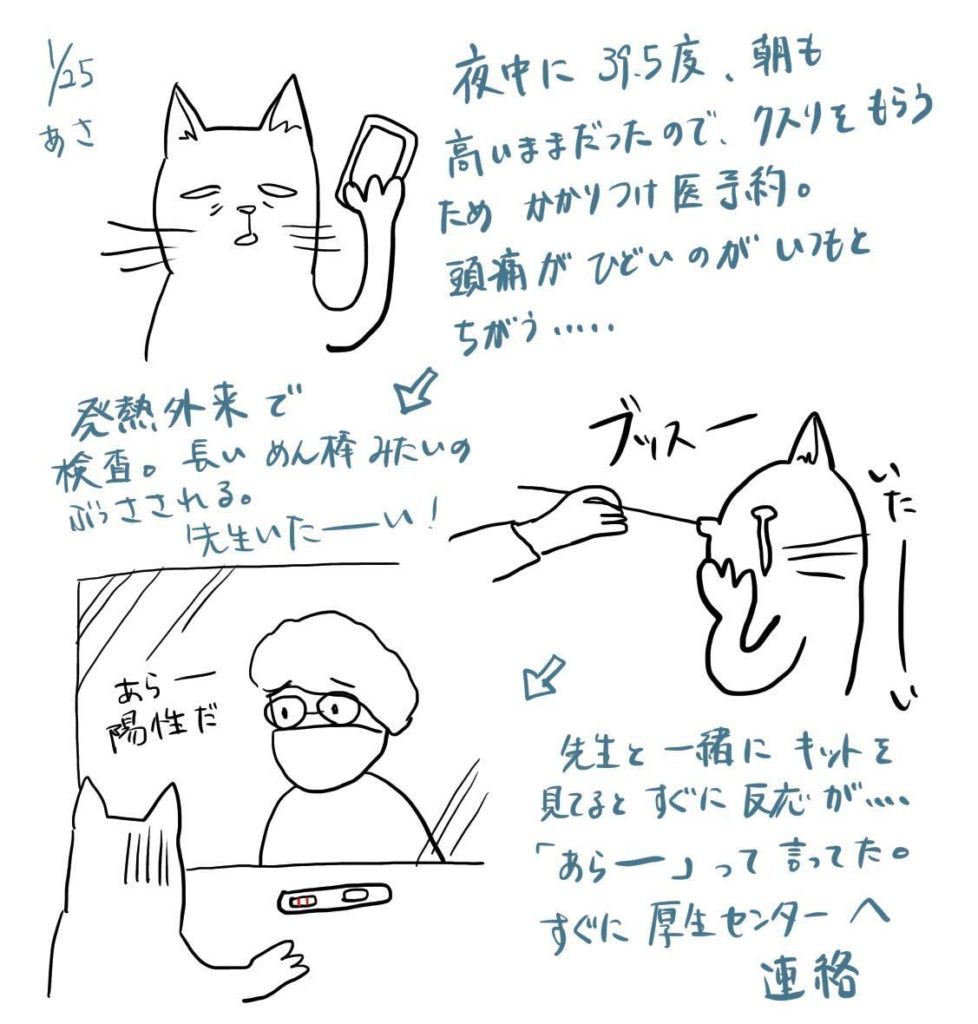 1/25
あさ
夜中に 39.5度、朝も
高いままだったので、クスリをもらう
ため かかりつけ医予約。
頭痛が ひどいのが いつもと
ちがう……
発熱外来で
検査。長い めん棒 みたいの
ぶっさされる。
先生いたーい!
ブッスー
いたーい
あらー
陽性だ
先生と 一緒に キットを
見てると すぐに 反応が‥‥
「あらー」って 言ってた。
すぐに 厚生センターへ
連絡